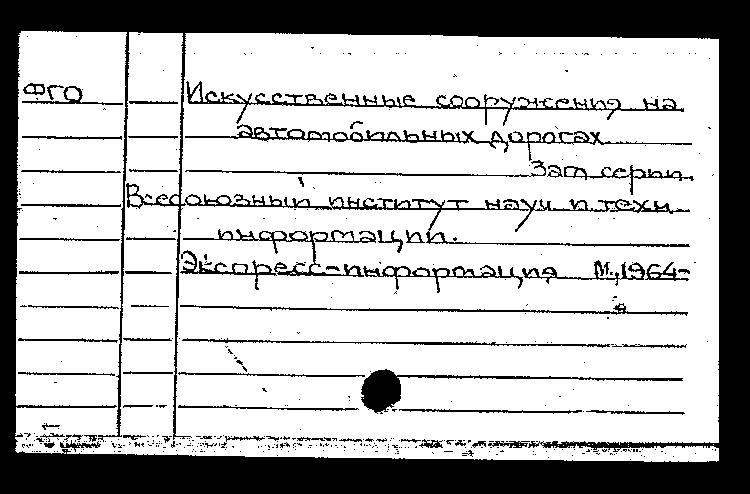 ФГО Искусственные сооружения на
автомобильных дорогах
Заг серии.
Всесоюзный институт науч и техн
информации.
Экспресс-информация М., 1964-